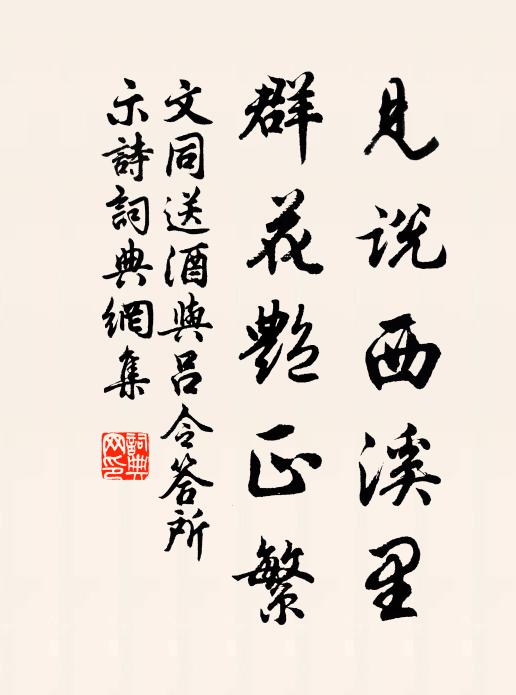 見说西溪里
群花艳正繁
文同送酒與吕令答所
示詩詞典網集
詞典網印